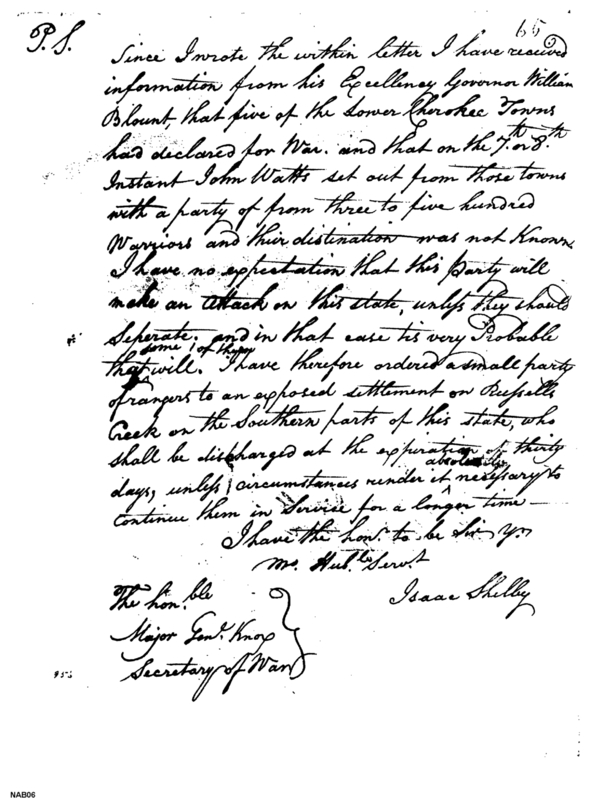 65
P.S.
Since I wrote the within letter I have received
information from his Excellency Governor William
Blount, that five of the Lower Cherokee Towns
had declared for War. and that on the 7.th or 8.th
Instant John Watts set out from those towns
with a party of from three to five hundred
Warriors and their distination was not Known
I have no expectation that this Party will
make an attack on this state, unless they should
Seperate. and in that case tis very Probable
some of them
that will. I have therefore ordered a small party
of rangers to an exposed settlement on Russells
Creek on the Southern parts of this state, who
shall be discharged at the expiration of thirty
absolutely
days, unless circumstances render it necessary to
continue them in Service for a longer time —
I have the hon.r to be Sir Yr.
Mo. Hub.le Serv.t
Isaac Shelby
The hon.ble
Major Gen.l Knox
Secretary of War
953
NAB06